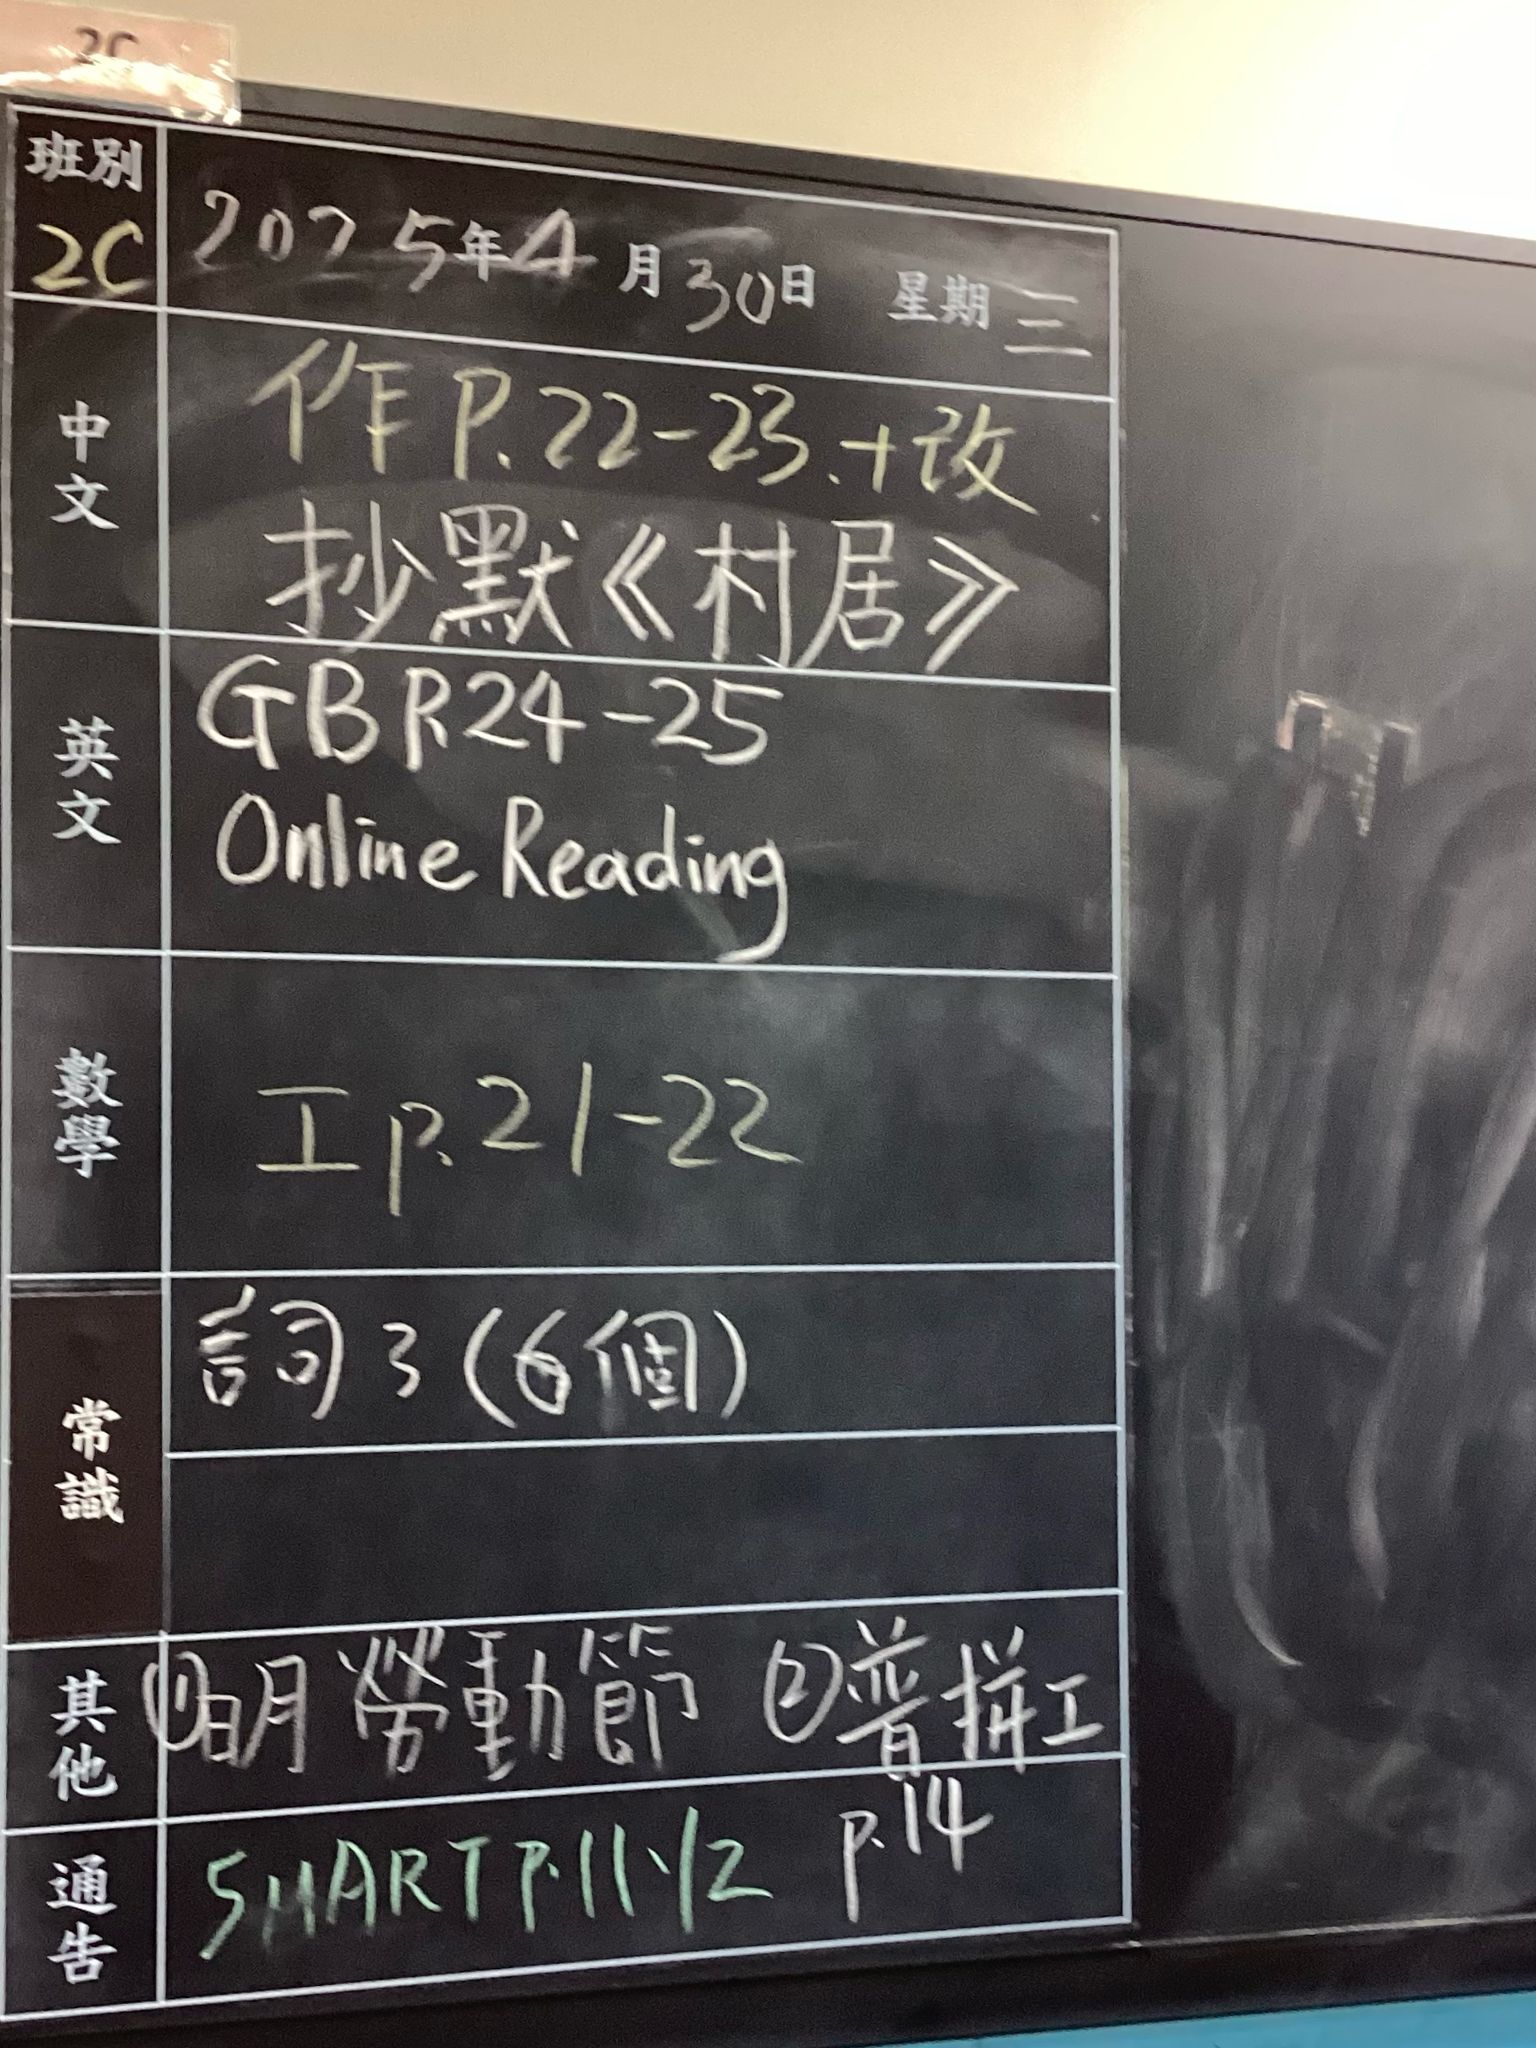 2C
班別
2C
2025年4月30日 星期三
中文
作 P.22-23.+改
抄默《村居》
英文
GB P.24-25
Online Reading
數學
工 p.21-22
常識
詞3(6個)
其他
①明勞動節 ②普拼工
p.14
通告
SMART P.11-12